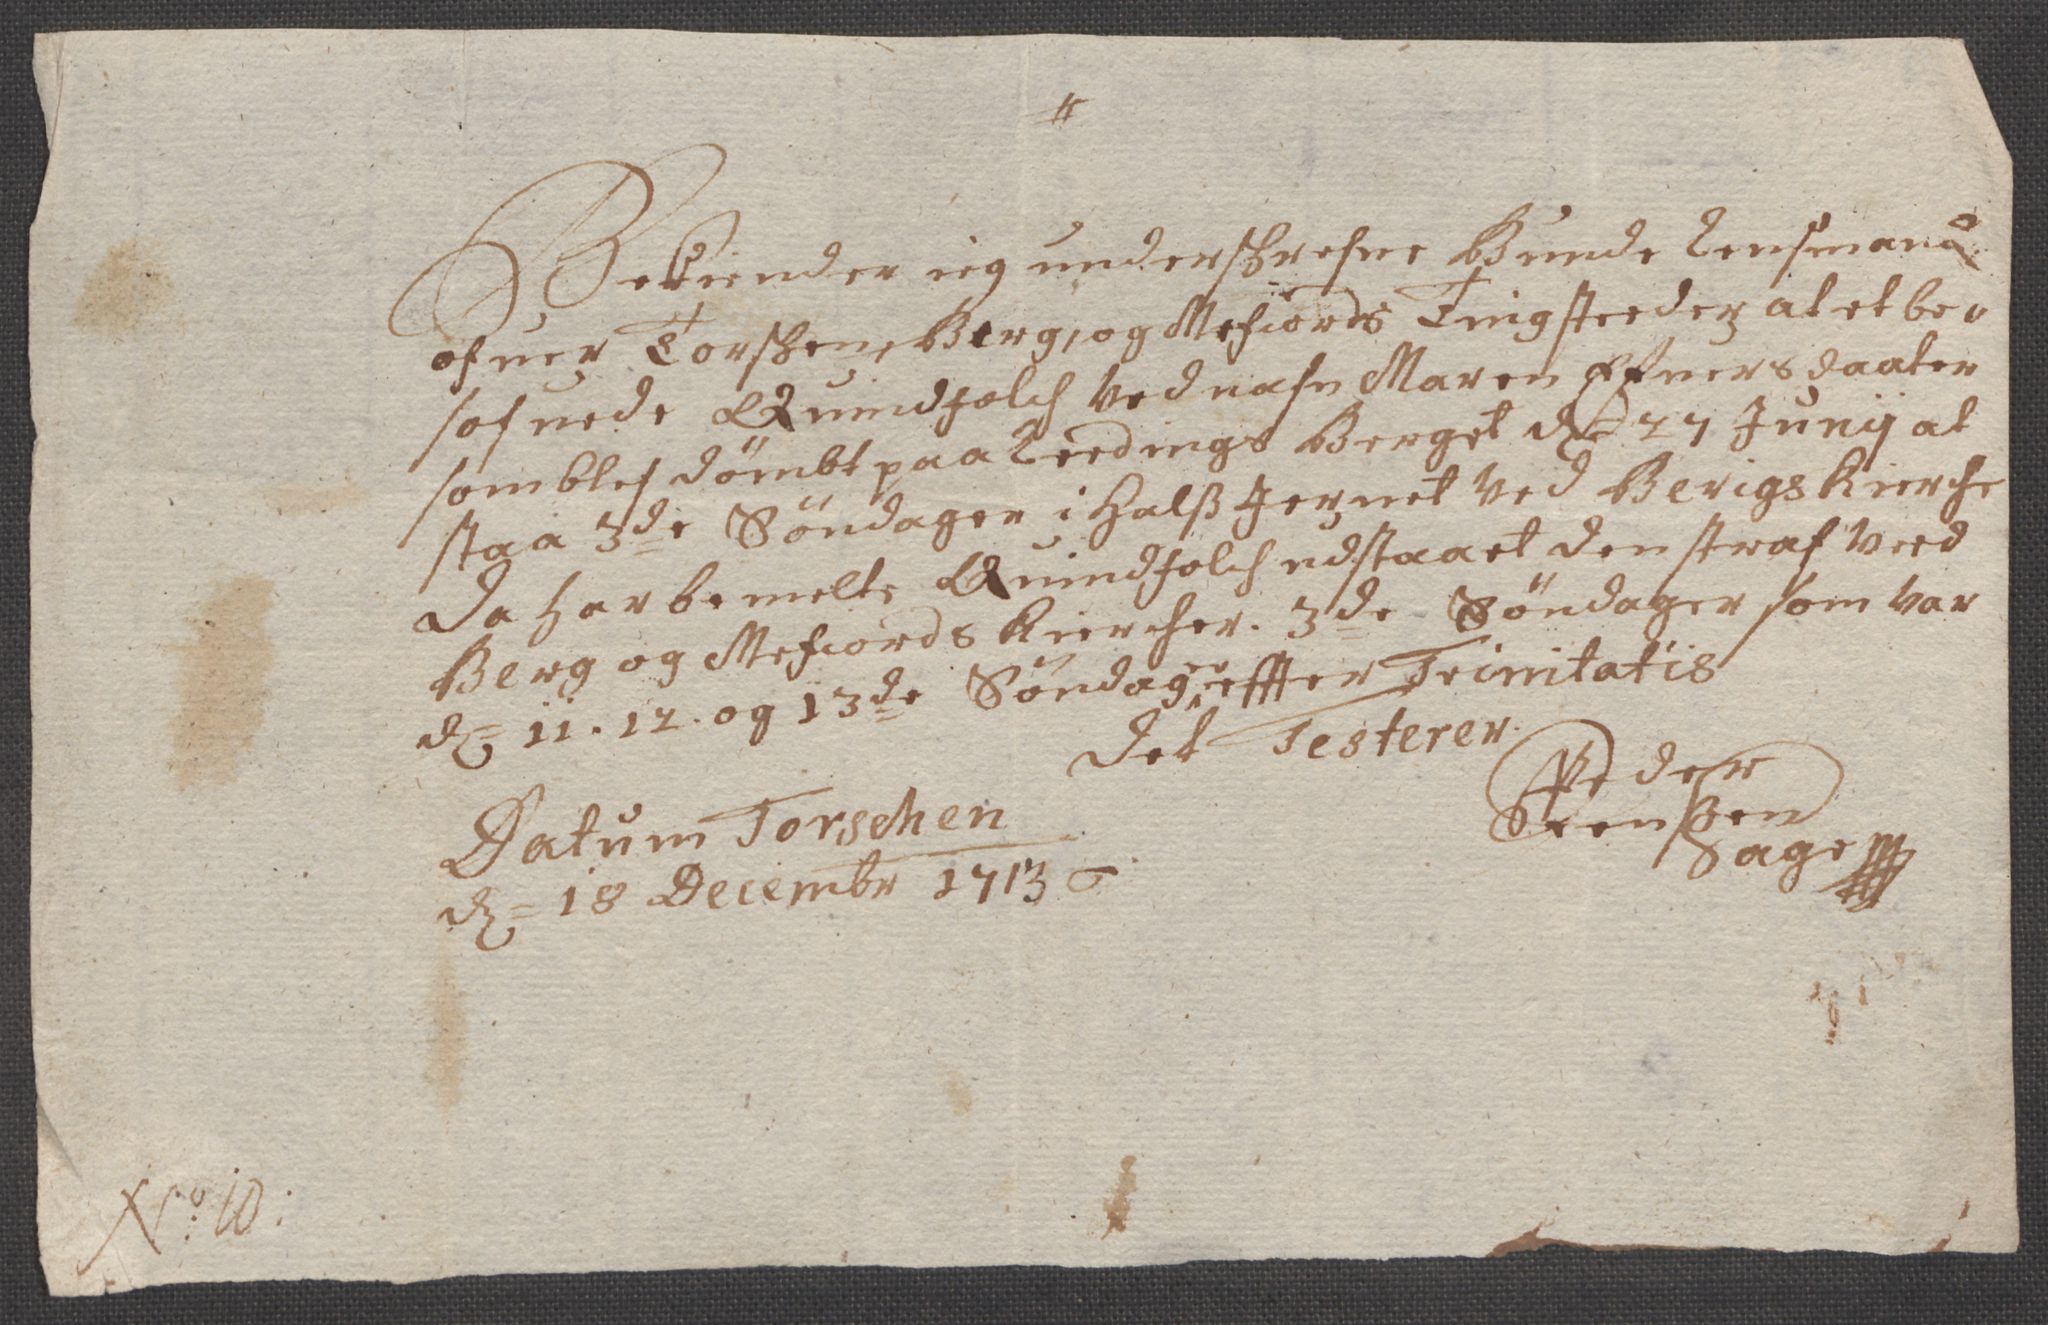 Bekiender ieg underskrefne Bunde Lensmand
ofuer Torsken, Berg, og Mefiords Tingsteeder at et be¬
sofuede Quindfolch ved nafn Maren Efuersdaater
som blef dømbt paa Leedings Berget dend 27 Junij at
staa 3de Søndager i Halß Jernet ved Berigs Kierche
Da har bemelte Quindfolch udstaaet den straf veed
Berg og Mefiords Kiercher. 3de Søndager som var
d= 11. 12. og 13de Søndager effter Trinitatis
Det Testerer.
Peder
Datum Torschen
d= 18 Decembr 1713
No 10: